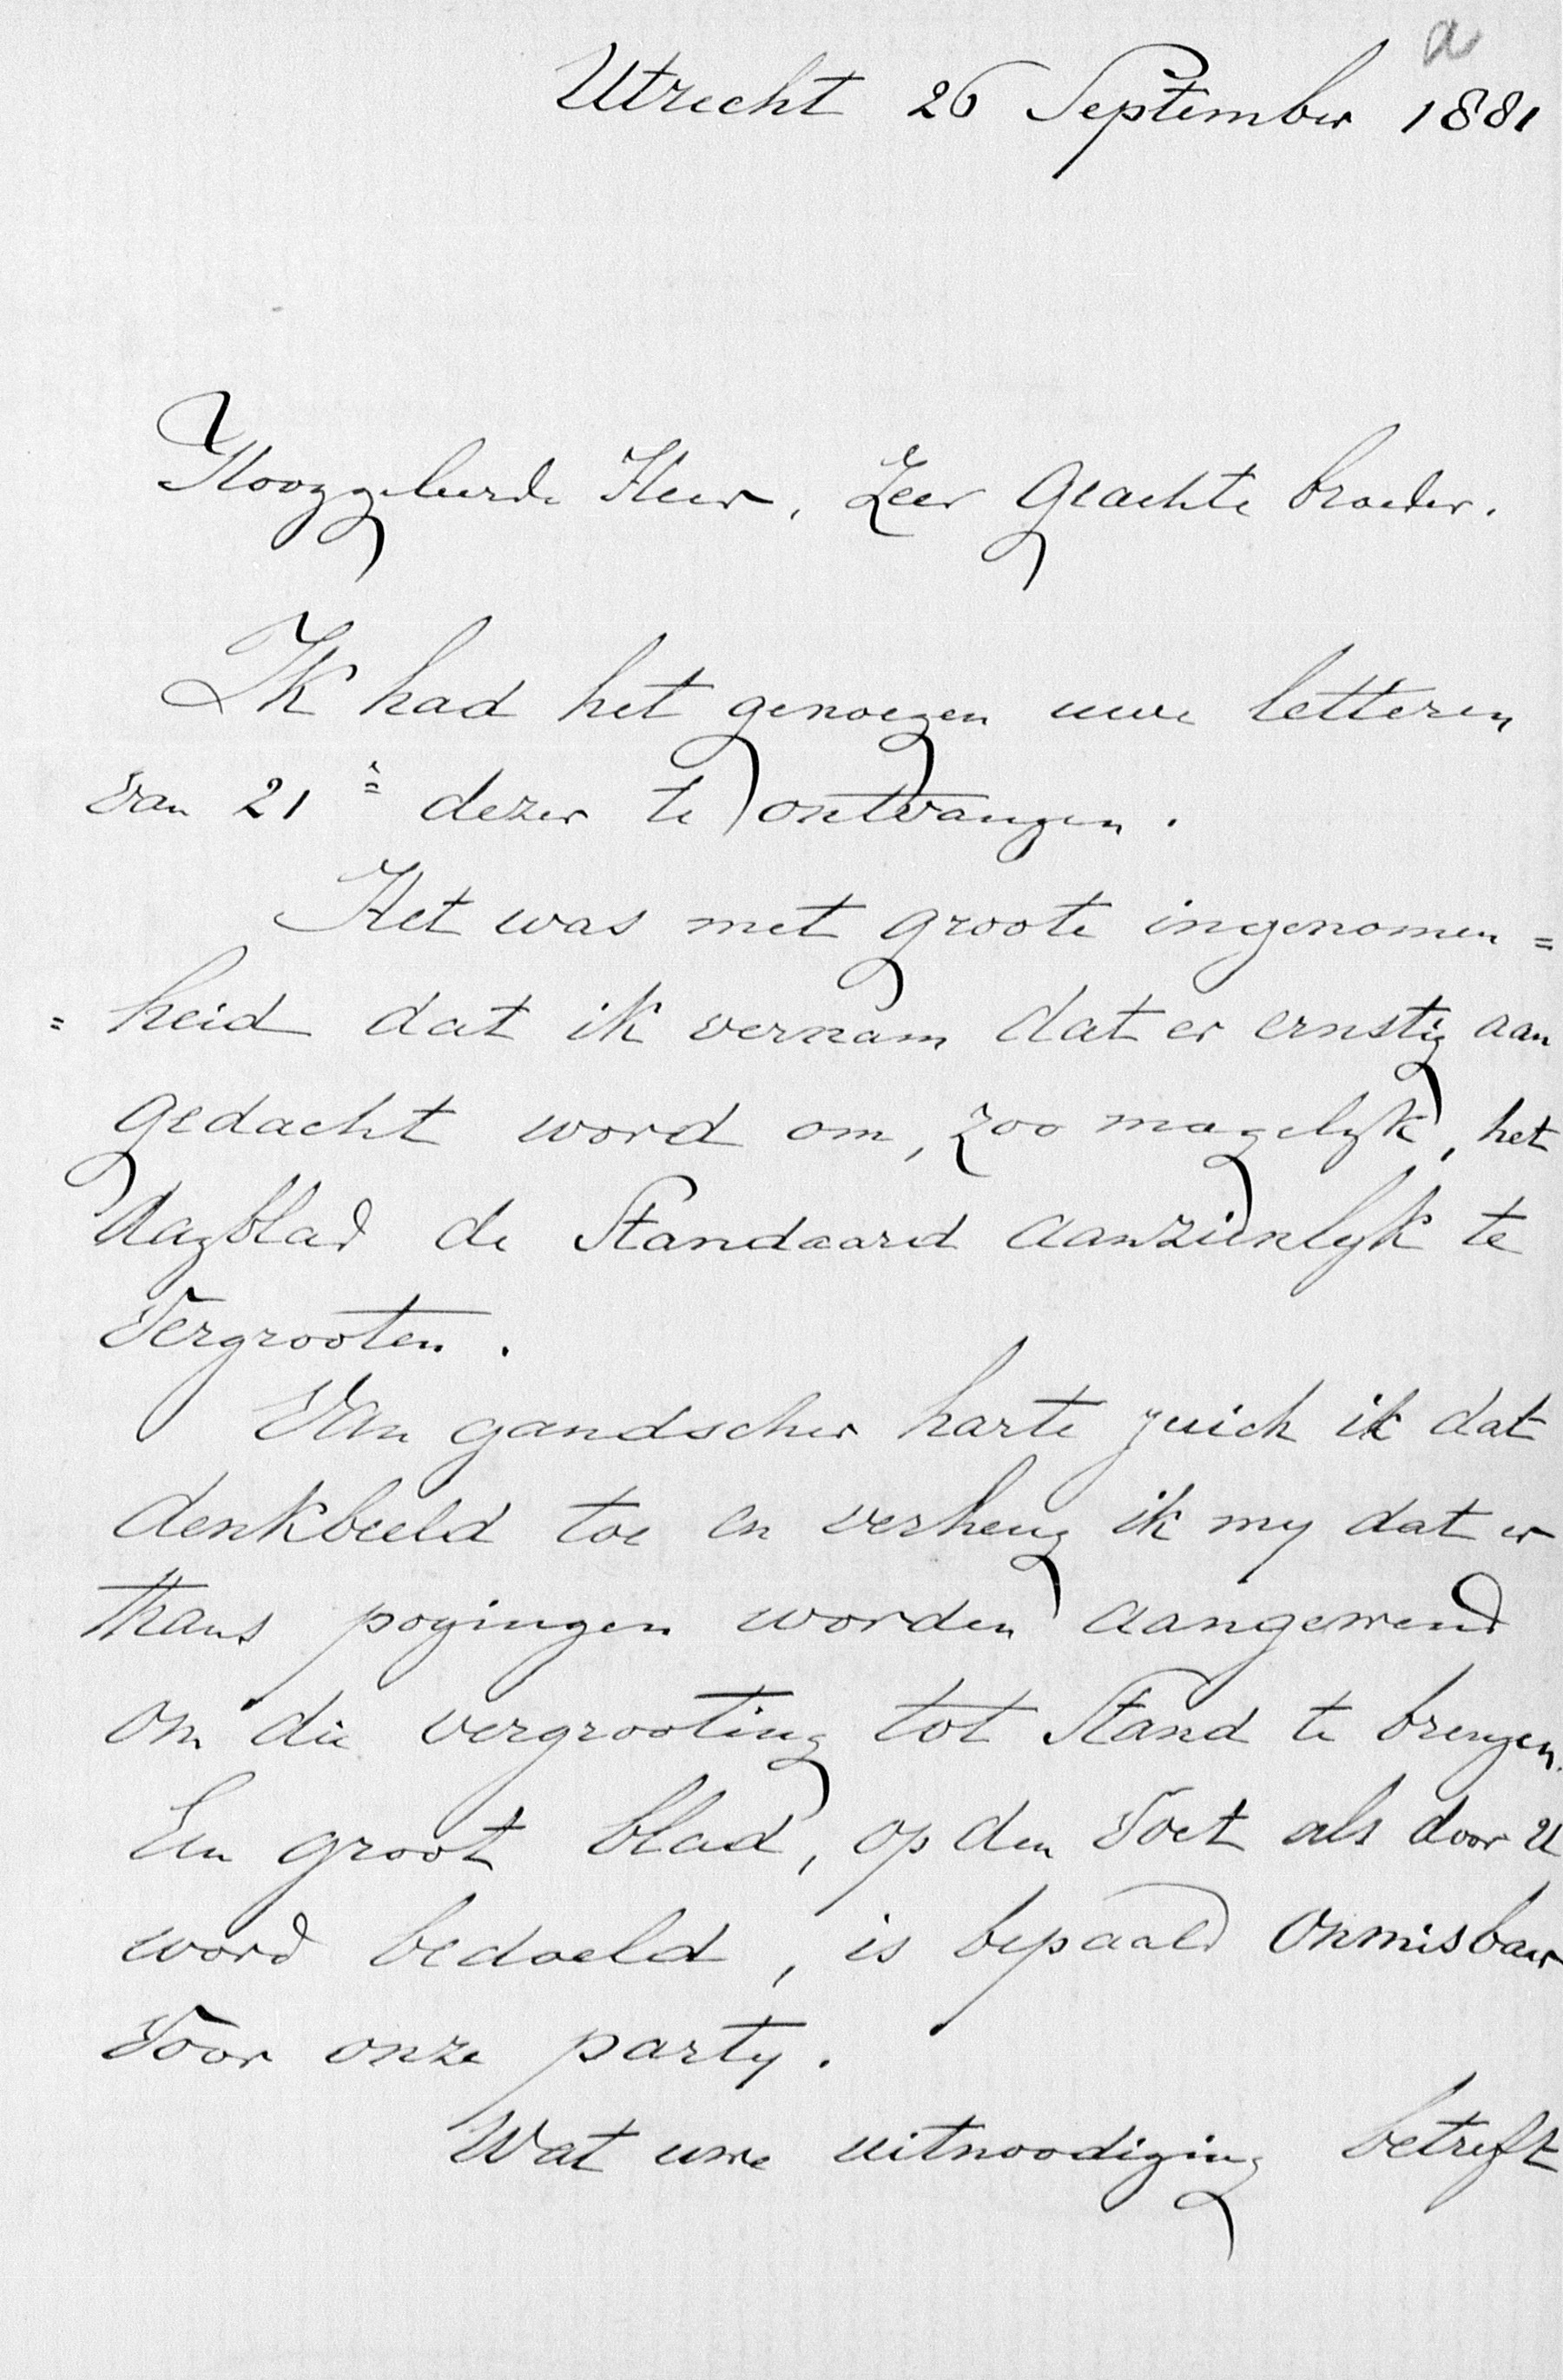 a
Utrecht 26 September 1881
Hooggeleerde Heer, Zeer Geachte broeder.
Ik had het genoegen uwe letteren
van 21e dezer te ontvangen.
Het was met groote ingenomen=
=heid dat ik vernam dat er ernstig aan
gedacht word om, zoo mogelyk, het
dagblad de Standaard aanzienlyk te
vergrooten.
Van gandscher harte juich ik dat
denkbeeld toe en verheug ik my dat er
thans pogingen worden aangewend
om die vergrooting tot Stand te brengen.
Een groot blad, op den voet als door U
word bedoeld, is bepaald onmisbaar
voor onze party.
Wat uwe uitnoodiging betreft